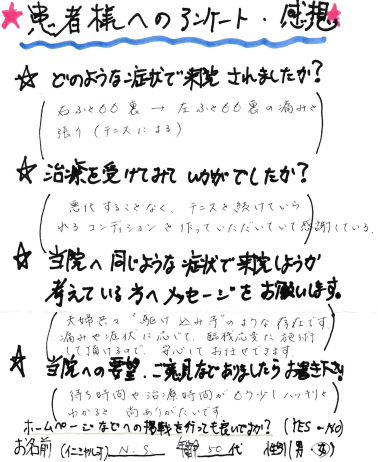 患者様へのアンケート・感想
☆ どのような症状で来院されましたか?
右ふともも裏 → 左ふともも裏の痛みと
張り(テニスによる)
☆ 治療を受けてみていかがでしたか?
悪化することなく、テニスを続けていら
れるコンディションを作っていただいていて感謝している。
☆ 当院へ同じような症状で来院しようか
考えている方へメッセージをお願いします。
夫婦共々"駆け込み寺"のような存在です
痛みや症状に応じて、臨機応変に施術
して頂けるので、安心してお任せできます
☆ 当院への要望、ご意見などありましたらお書き下さい
待ち時間や治療時間がもう少しハッキリと
わかると尚ありがたいです。
ホームページなどへの掲載を行っても良いですか?(YES・NO)
お名前(イニシャル可) N.S 年齢 50代 性別(男・女)